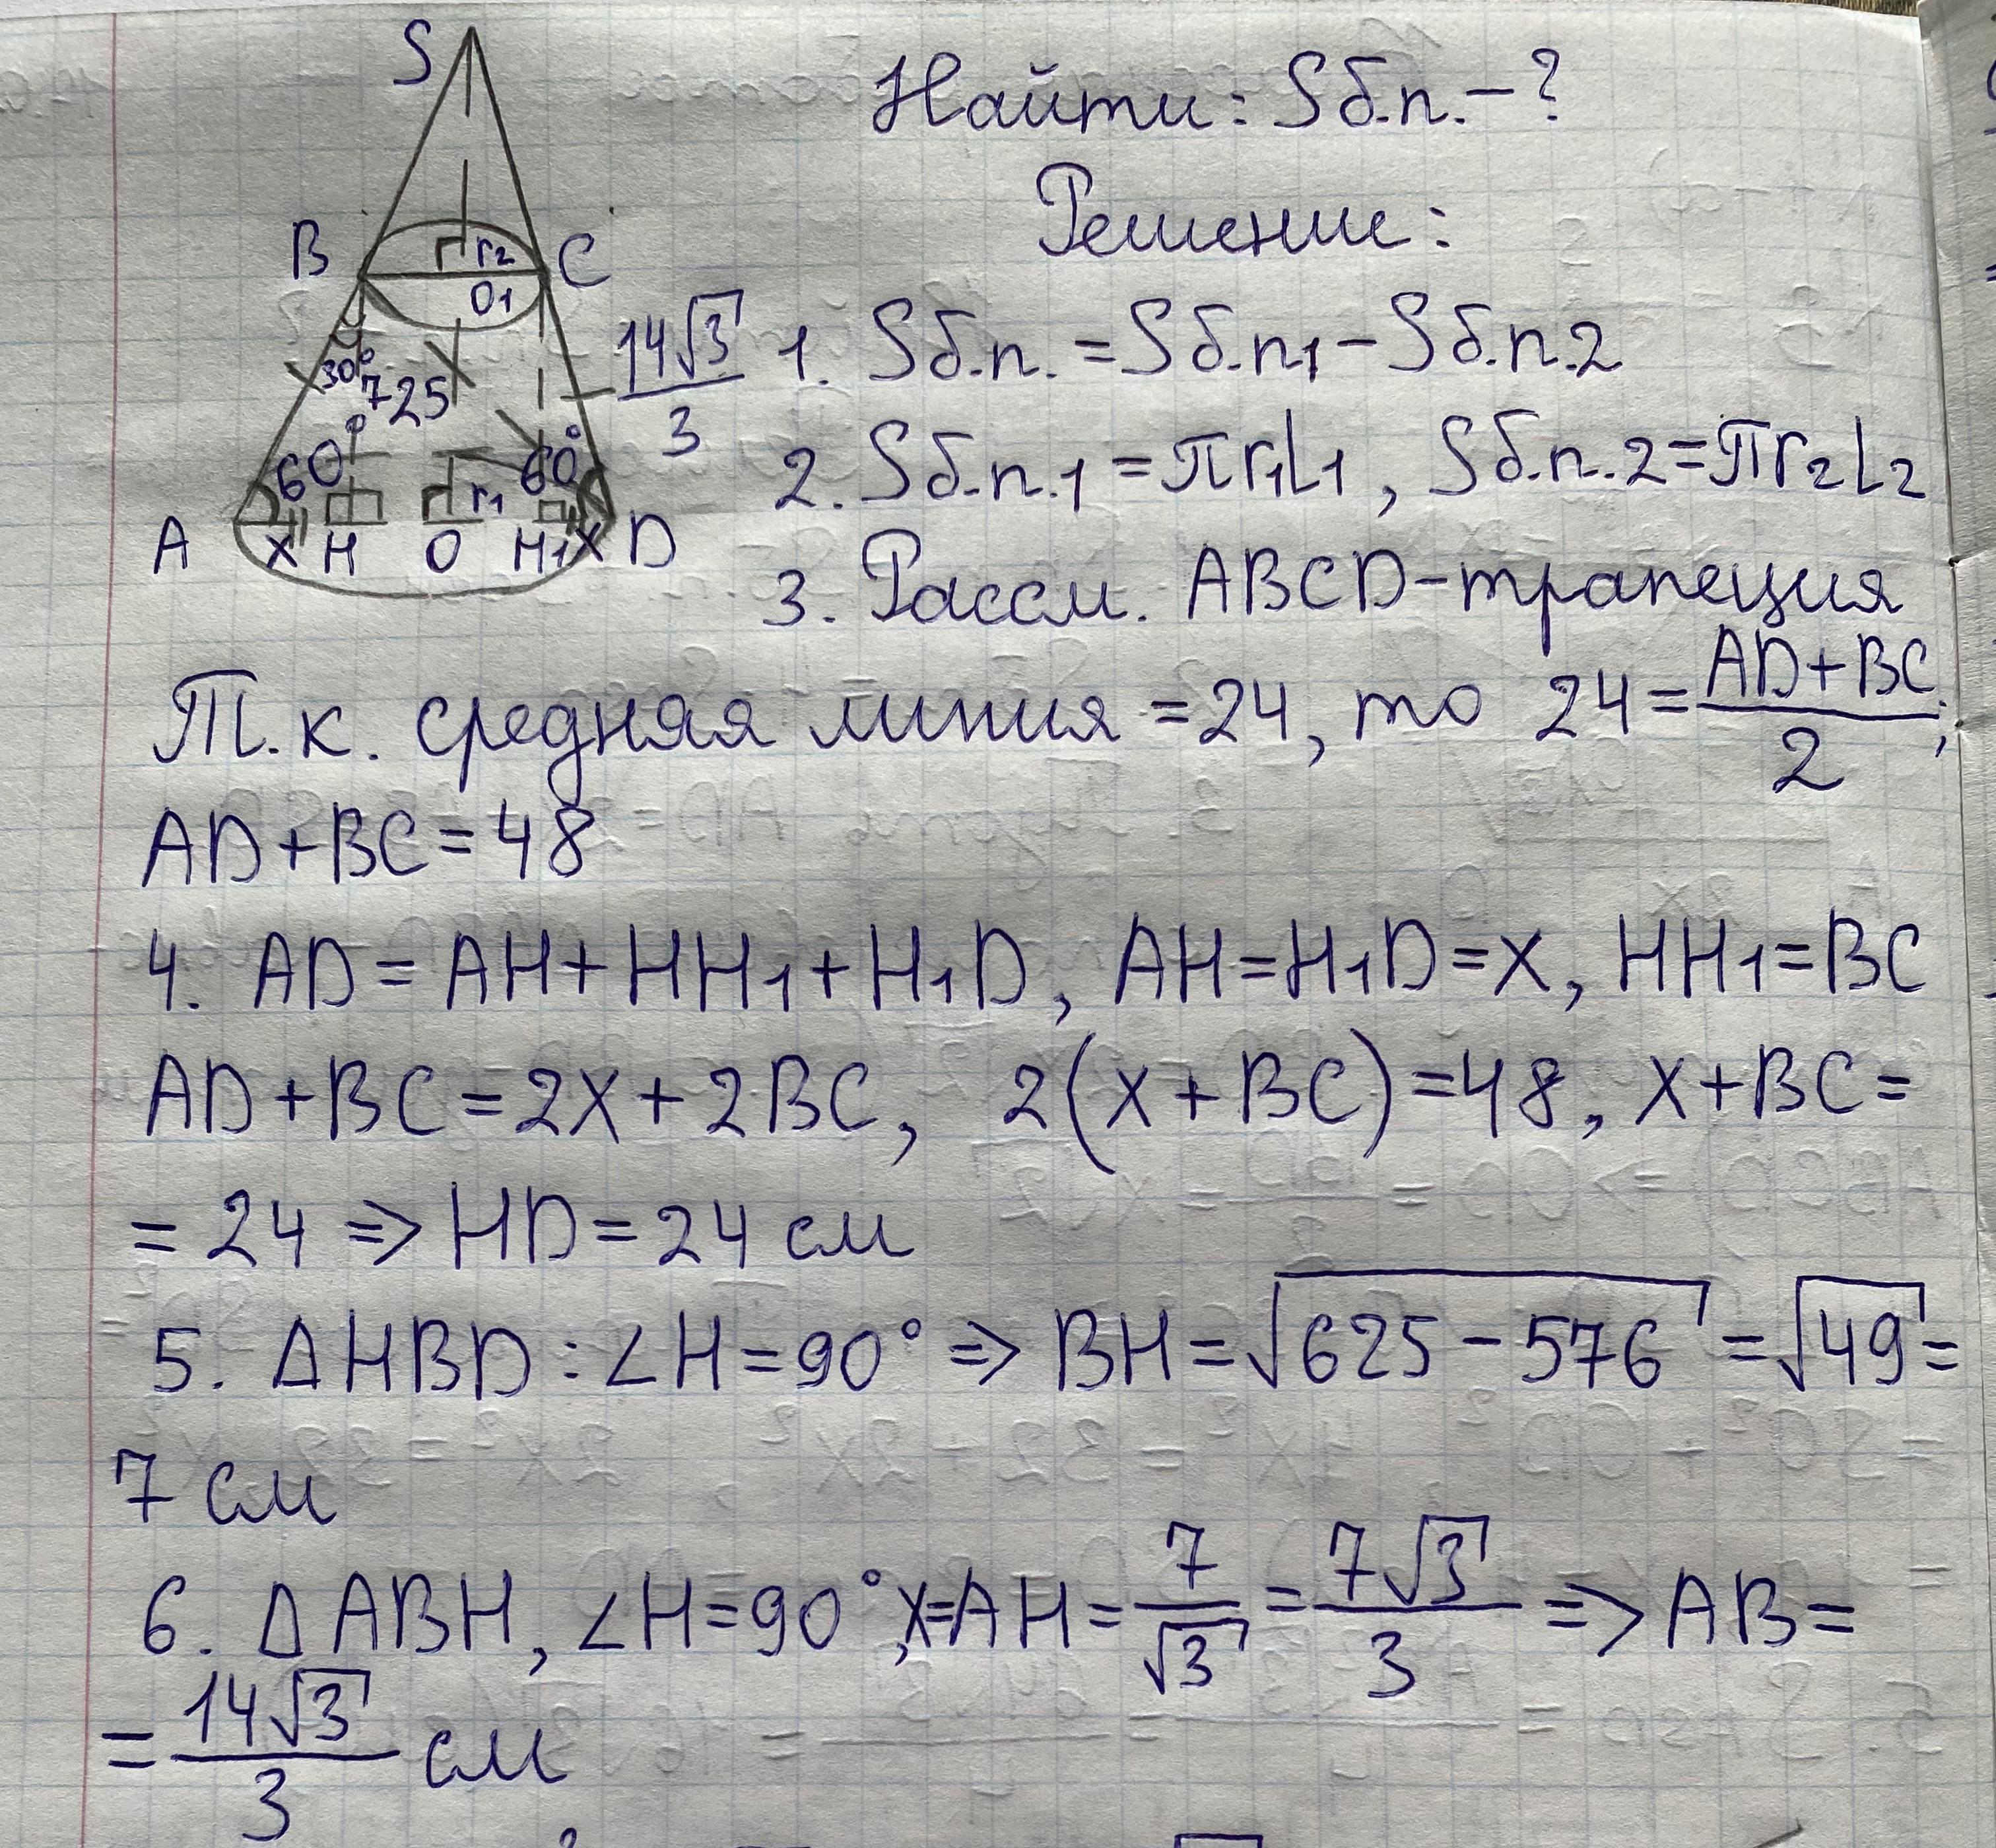 S
Найти: Sб.п. – ?
Решение:
B r₂ C
O₁
30°
7 25
14√3/3
60° 60°
r₁
A X H O H₁ X D
1. Sб.п. = Sб.п1 – Sб.п.2
2. Sб.п.1 = πr₁L₁, Sб.п.2 = πr₂L₂
3. Рассм. ABCD – трапеция
Т.к. средняя линия = 24, то 24 = (AD+BC)/2;
AD + BC = 48
4. AD = AH + HH₁ + H₁D, AH = H₁D = X, HH₁ = BC
AD + BC = 2X + 2BC, 2(X + BC) = 48, X + BC =
= 24 ⇒ HD = 24 см
5. ΔHBD : ∠H = 90° ⇒ BH = √(625 – 576) = √49 =
7 см
6. ΔABH, ∠H = 90°, X = AH = 7/√3 = 7√3/3 ⇒ AB =
= 14√3/3 см